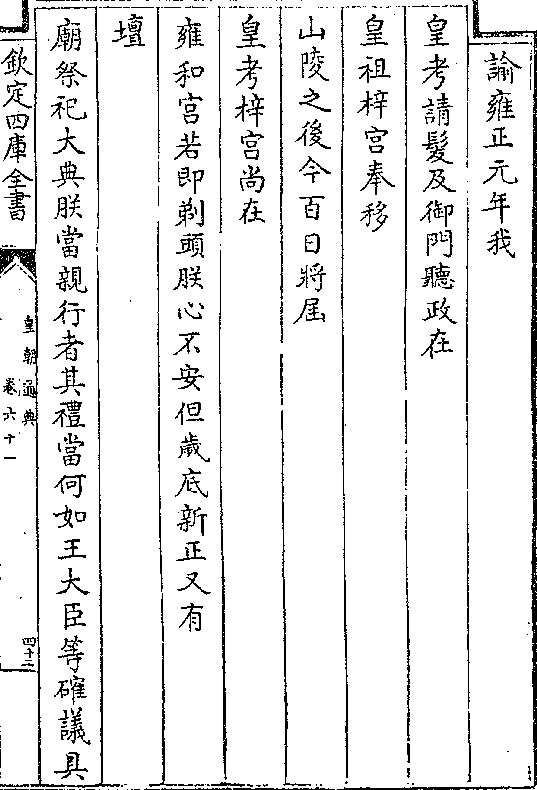 諭雍正元年我
皇考請髮及御門聽政在
皇祖梓宫奉移
山陵之後今百日將屆
皇考梓宫尚在
雍和宫若即剃頭朕心不安但歲底新正又有
壇
廟祭祀大典朕當親行者其禮當何如王大臣等確議具
欽定四庫全書
皇朝通典
卷六十一